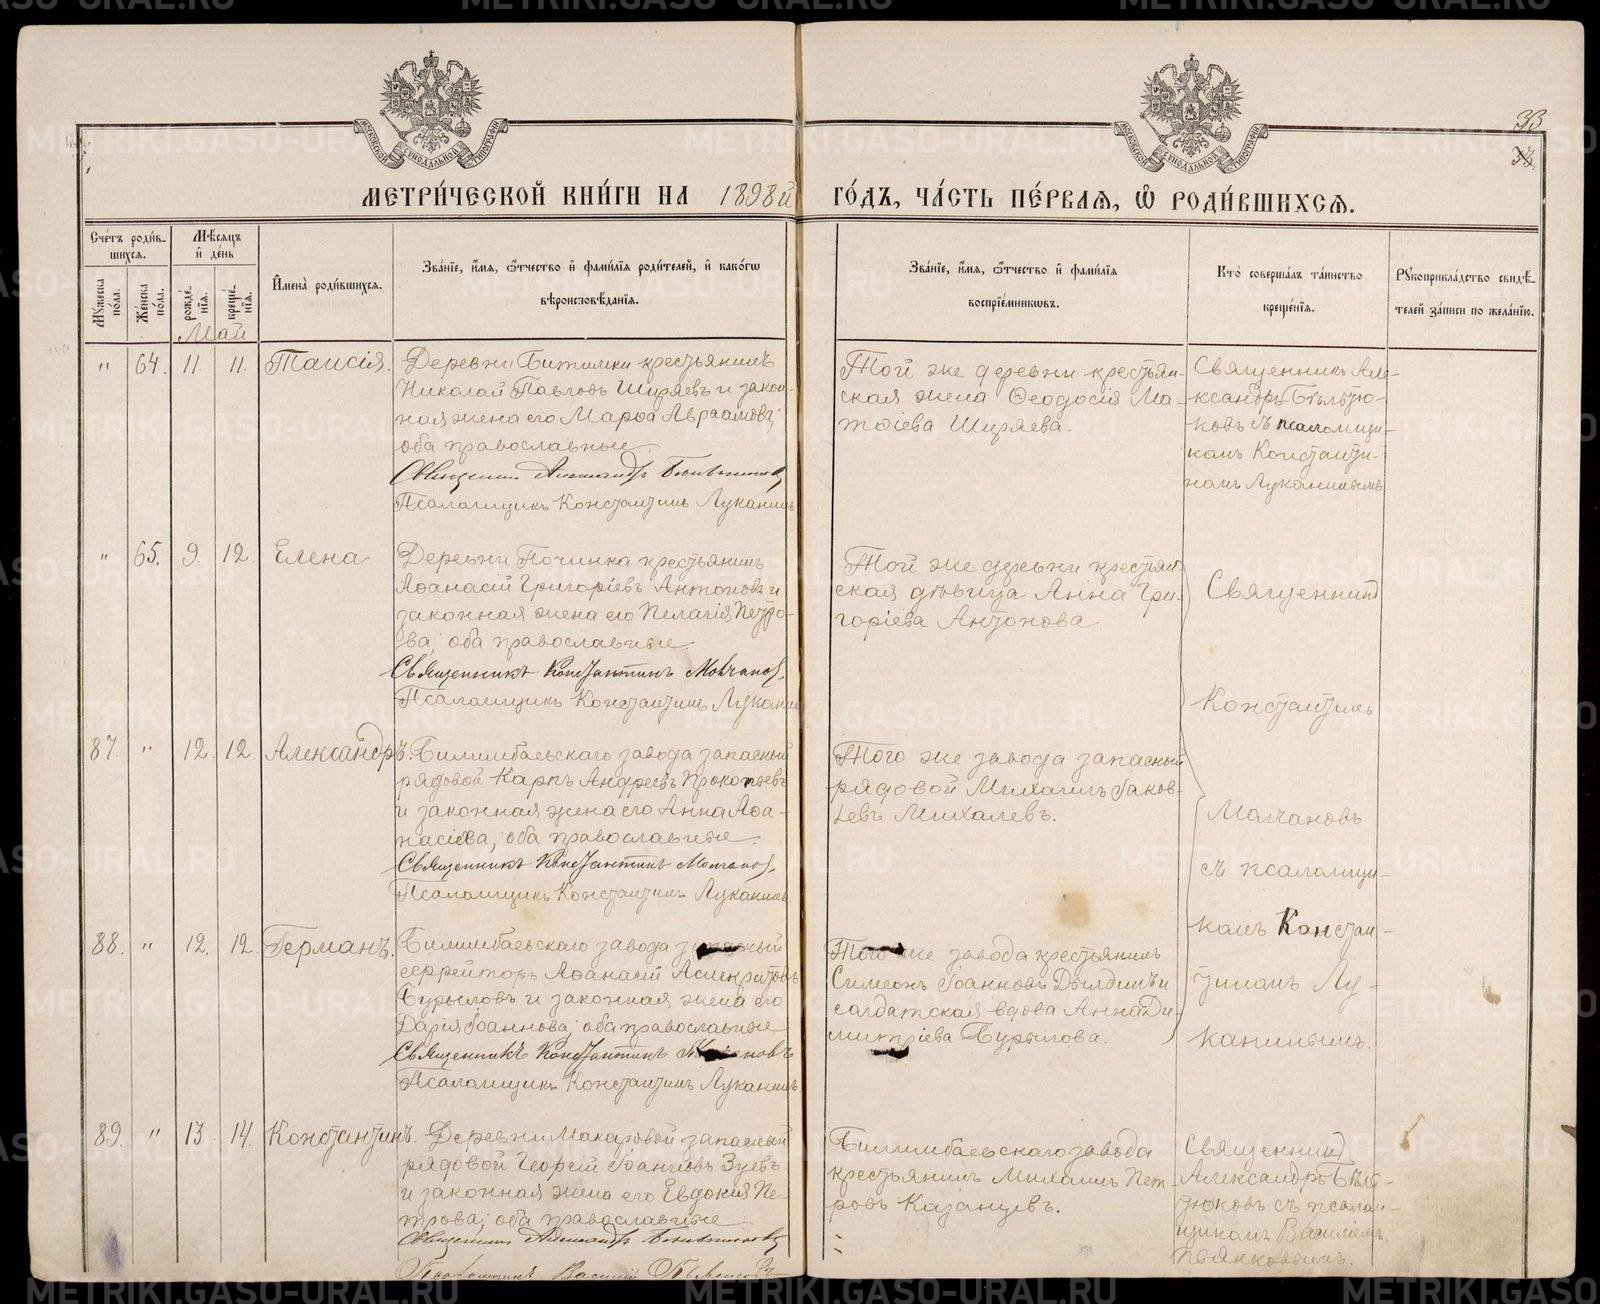 МЕТРИ́ЧЕСКОЙ КНИ́ГИ НА 1898й ГО́ДЪ, ЧА́СТЬ ПЕ́РВАѦ, Ѡ҆ РОДИ́ВШИХСѦ.
33
Сче́тъ роди́в-
шихся.
Мѣ́сяцъ
и҆ де́нь
Мꙋ́жеска по́ла.
Же́нска по́ла.
рожде́нїя.
креще́нїя.
Май
И҆мена̀ роди́вшихся.
Зва́нїе, и҆́мя, ѻ҆́тчество и҆ фами́лїя роди́телей, и҆ како́гѡ
вѣроисповѣ́данїя.
Зва́нїе, и҆́мя, ѻ҆́тчество и҆ фами́лїя
воспрїе́мникѡвъ.
Кто̀ соверша́лъ та́инство
креще́нїя.
Рꙋкоприкла́дство свидѣ́-
телей за́писи по жела́нїю.
" 64. 11. 11. Таисія.
Деревни Битимки крестьянинъ
Николай Павловъ Ширяевъ и закон-
ная жена его Марѳа Авраамова;
оба православные
Священник Александръ Бѣлтюков
Псаломщикъ Константинъ Луканинъ
Той же деревни крестьян-
ская жена Ѳеодосія Ма-
тѳіева Ширяева.
Священникъ Але-
ксандръ Бѣлтю-
ковъ съ псаломщи-
комъ Константи-
номъ Луканинымъ
" 65. 9. 12. Елена
Деревни Починка крестьянинъ
Аѳанасій Григоріевъ Антоновъ и
законная жена его Пелагія Петро-
ва; оба православные.
Священникъ Константинъ Молчановъ.
Псаломщикъ Константинъ Луканин
Той же деревни крестьян-
ская дѣвица Анна Гри-
горіева Антонова.
Священникъ
Константинъ
Молчановъ
съ псаломщи-
комъ Констан-
тиномъ Лу-
канинымъ.
87. " 12. 12. Александръ.
Билимбаевскаго завода запасный
рядовой Карпъ Андреевъ Прокопьевъ
и законная жена его Анна Аѳа-
насіева; оба православные.
Священникъ Константинъ Молчановъ.
Псаломщикъ Константинъ Луканинъ
Того же завода запасный
рядовой Михаилъ Іаков-
левъ Михалевъ.
88. " 12. 12. Германъ.
Билимбаевскаго завода запасный
ефрейторъ Аѳанасій Асинкритовъ
Бурыловъ и законная жена его
Дарія Іоаннова; оба православные
Священникъ Константинъ Молчановъ
Псаломщикъ Константинъ Луканинъ.
Того же завода крестьянинъ
Симеонъ Іоанновъ Дылдинъ и
солдатская вдова Анна Ди-
митріева Бурылова.
89. " 13. 14. Константинъ.
Деревни Макаровой запасный
рядовой Георгій Іоанновъ Зуевъ
и законная жена его Евдокия Пе-
трова; оба православные
Священник Александръ Бѣлтюков
Псаломщикъ Василій
Билимбаевскаго завода
крестьянинъ Михаилъ Пет-
ровъ Казанцевъ.
Священникъ
Александръ Бѣл-
тюковъ съ псалом-
щикомъ Василіемъ
Пьянковымъ.
METRIKI.GASO-URAL.RU